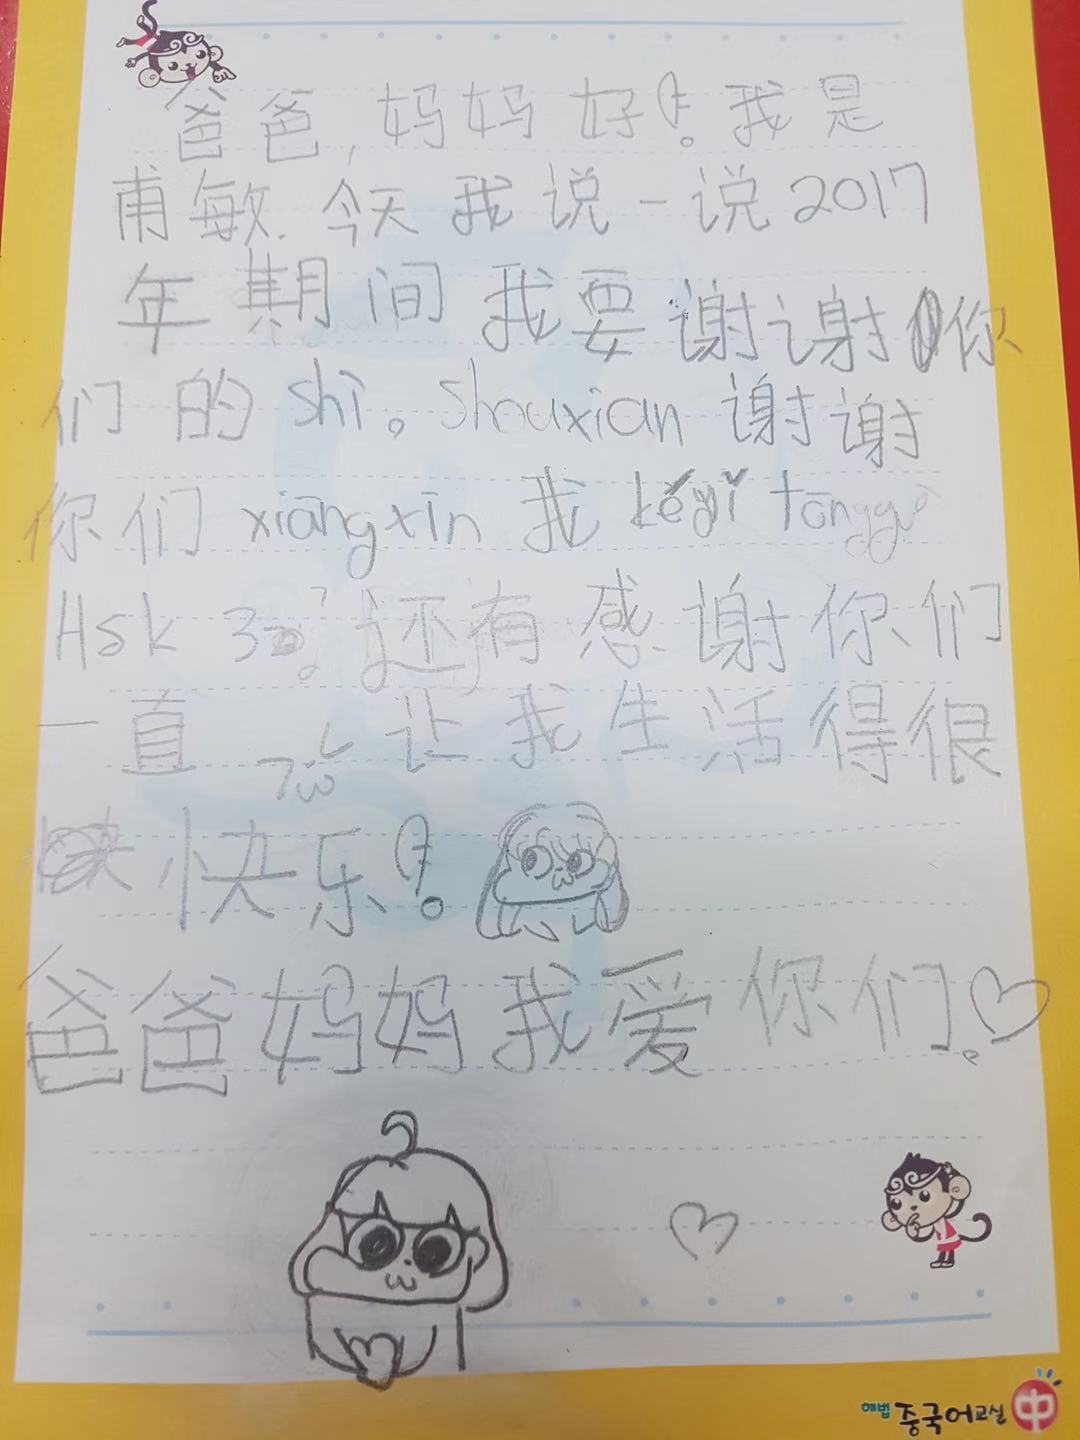 爸爸,妈妈好!我是
甫敏.今天我说一说2017
年期间我要谢谢你
们的shì。shouxian谢谢
你们xiāngxìn我kéyǐ tōngguò
Hsk 3级,还有感谢你们
一直让我生活得很
快乐!
爸爸妈妈我爱你们.♡
해법 중국어교실 中